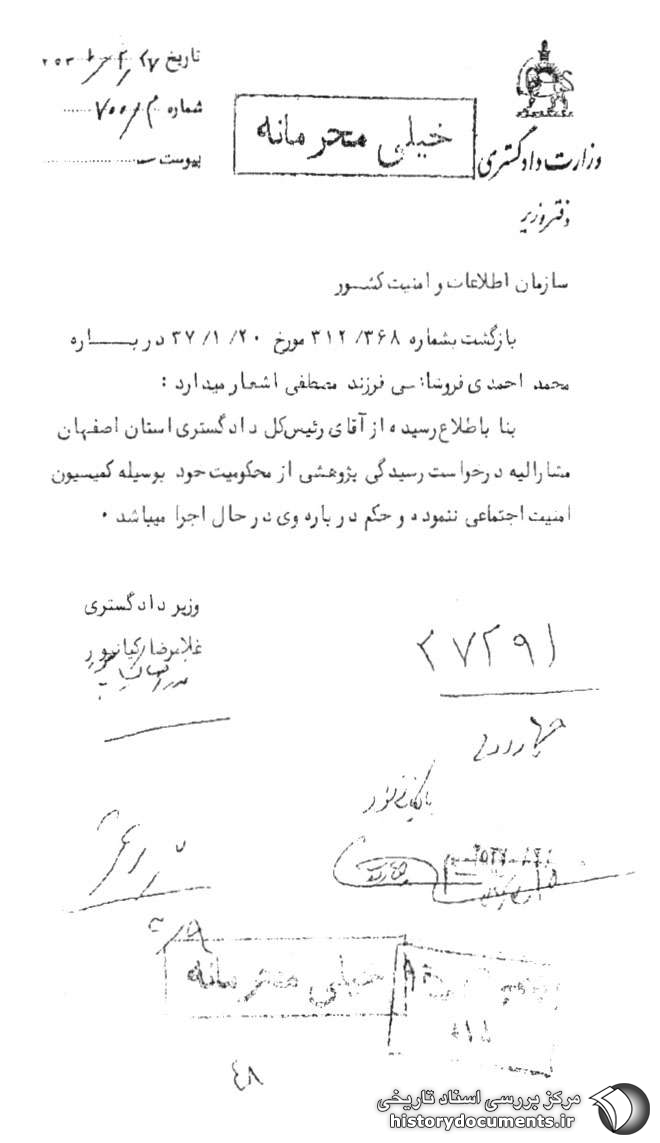 تاریخ
شماره ۷۰۰
پیوست
خیلی محرمانه
وزارت دادگستری
دفتر وزیر
سازمان اطلاعات و امنیت کشور
بازگشت بشماره ۳۱۲/۳۶۸ مورخ ۳۷/۱/۲۰ در باره
محمد احمدی فروشانی فرزند مصطفی اشعار میدارد :
بنا باطلاع رسیده از آقای رئیس کل دادگستری استان اصفهان
مشارالیه درخواست رسیدگی پژوهشی از محکومیت خود بوسیله کمیسیون
امنیت اجتماعی ننموده و حکم در باره وی در حال اجرا میباشد .
وزیر دادگستری
غلامرضا کیانپور
۲۷۲۹۱
بایگانی شود
خیلی محرمانه
۴۸
مرکز بررسی اسناد تاریخی
historydocuments.ir